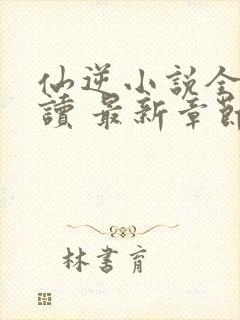 仙逆小說全
讀 最新章節
林書育